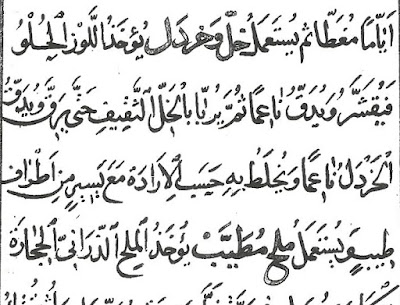 اَيَّامًا مُغَطَّا ثم يُستَعمَلُ خلّ وَخردَل يُؤخَذُ اللَّوْز الحُلْوُ
فَيُقَشَّرُ وَيُدَقُّ نَاعمًا ثُمَّ يربَّا بالخَلِّ الثَّقيفِ حَتَّى يرقَّ وَيُدَقُّ
الخَردَلُ نَاعمًا وَيُخلَطُ بِهِ حَسَب الارَادَة مَع يَسِير مِن اَطْرَاف
طِيبٍ وَيُستَعمَل ملح مُطَيَّب يُؤخَذُ المِلح الدَّرَانىّ الحِجَارَة